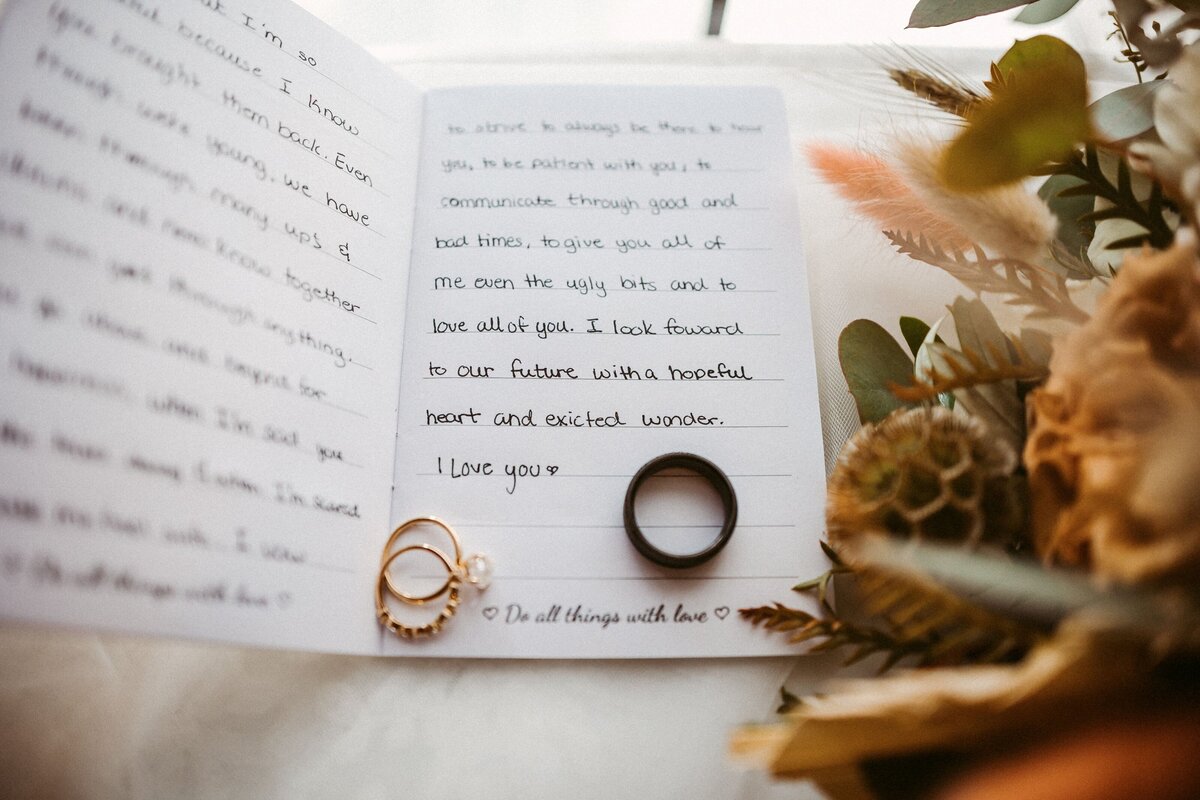 I'm so
because I know
you brought them back. Even
though we're young, we have
been through many ups &
and now know together
get through anything.
and beyond for
when I'm sad you
I'm scared
I vow
Do all things with love ♡
to strive to always be there to
you, to be patient with you, to
communicate through good and
bad times, to give you all of
me even the ugly bits and to
love all of you. I look foward
to our future with a hopeful
heart and exicted wonder.
I Love you ♡
♡ Do all things with love ♡